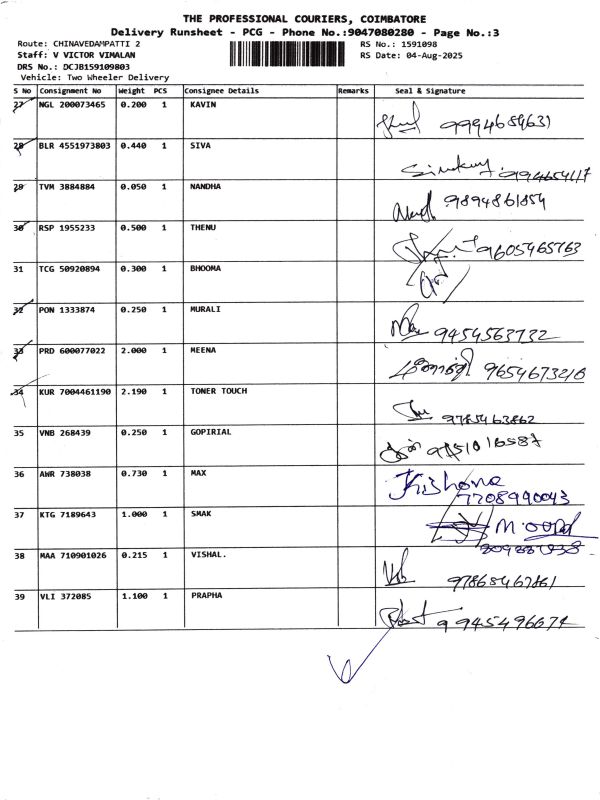 THE PROFESSIONAL COURIERS, COIMBATORE
Delivery Runsheet - PCG - Phone No.:9047080280 - Page No.:3
Route: CHINAVEDAMPATTI 2 RS No.: 1591098
Staff: V VICTOR VIMALAN RS Date: 04-Aug-2025
DRS No.: DCJB159109803
Vehicle: Two Wheeler Delivery
S No Consignment No Weight PCS Consignee Details Remarks Seal & Signature
27 NGL 200073465 0.200 1 KAVIN
9994689631
28 BLR 4551973803 0.440 1 SIVA
29 TVM 3884884 0.050 1 NANDHA
9894861854
30 RSP 1955233 0.500 1 THENU
9605465763
31 TCG 50920894 0.300 1 BHOOMA
32 PON 1333874 0.250 1 MURALI
9454563732
33 PRD 600077022 2.000 1 MEENA
மீனாட்சி 9654673210
34 KUR 7004461190 2.190 1 TONER TOUCH
9785463862
35 VNB 268439 0.250 1 GOPIRIAL
36 AWR 738038 0.730 1 MAX
Kishore
7708990043
37 KTG 7189643 1.000 1 SMAK
38 MAA 710901026 0.215 1 VISHAL.
39 VLI 372085 1.100 1 PRAPHA